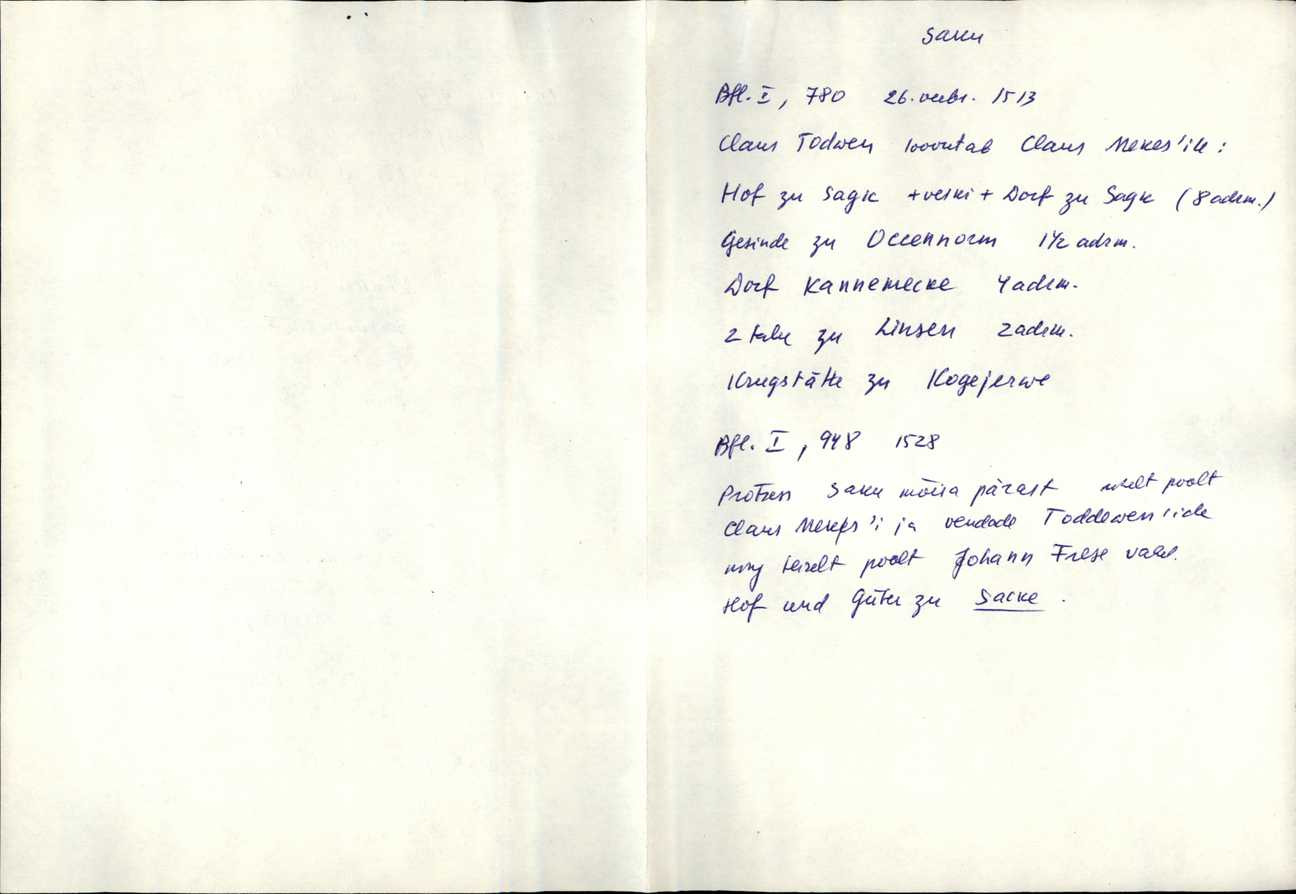 Saku
Bfl. I, 780 26. veebr. 1513
Claus Todwen loovutab Claus Mekes'ile :
Hof zu Sagk + veski + Dorf zu Sagk (8 adrm.)
Gesinde zu Occennorm 1 1/2 adrm.
Dorf Kannemecke 4 adrm.
2 talu zu Linsen 2 adrm.
Krugstätte zu Kogejerwe
Bfl. I, 948 1528
Protsess Saku mõisa pärast ühelt poolt
Claus Mekes'i ja vendade Toddewen'ide
ning teiselt poolt Johann Frese vahel.
Hof und Güter zu Sacke.